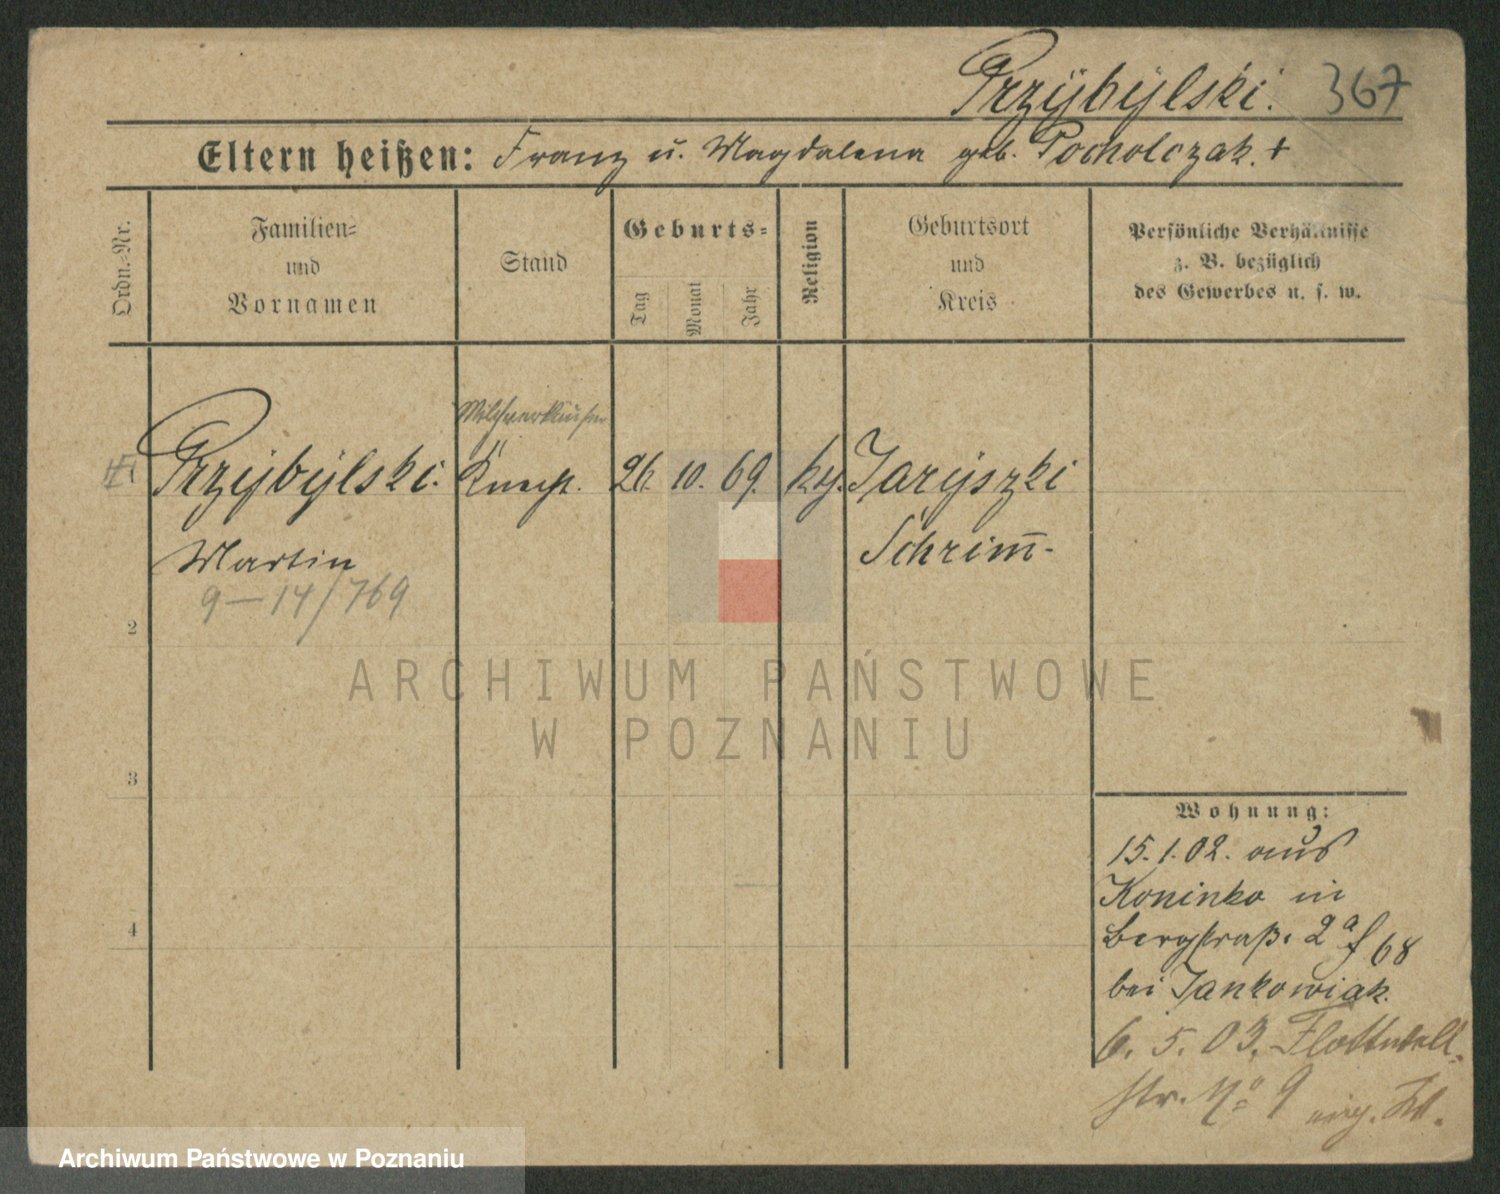 Przÿbÿlski. 367
Eltern heißen: Franz u. Magdalena geb. Pocholczak. +
Ordn.-Nr.
Familien-
und
Vornamen
Stand
Geburts-
Tag
Monat
Jahr
Religion
Geburtsort
und
Kreis
Persönliche Verhältnisse
z. B. bezüglich
des Gewerbes u. s. w.
Milchverkäufer
Przÿbÿlski. Knecht. 26. 10. 69. kth. Jarÿszki
Martin Schrim̅.
9-14/769
2
3
4
Wohnung:
15.1.02. aus
Koninko in
Bergstraß. 2a f 68
bei Jankowiak.
6. 5. 03. Flottwell-
str. No 9
ARCHIWUM PAŃSTWOWE
W POZNANIU
Archiwum Państwowe w Poznaniu